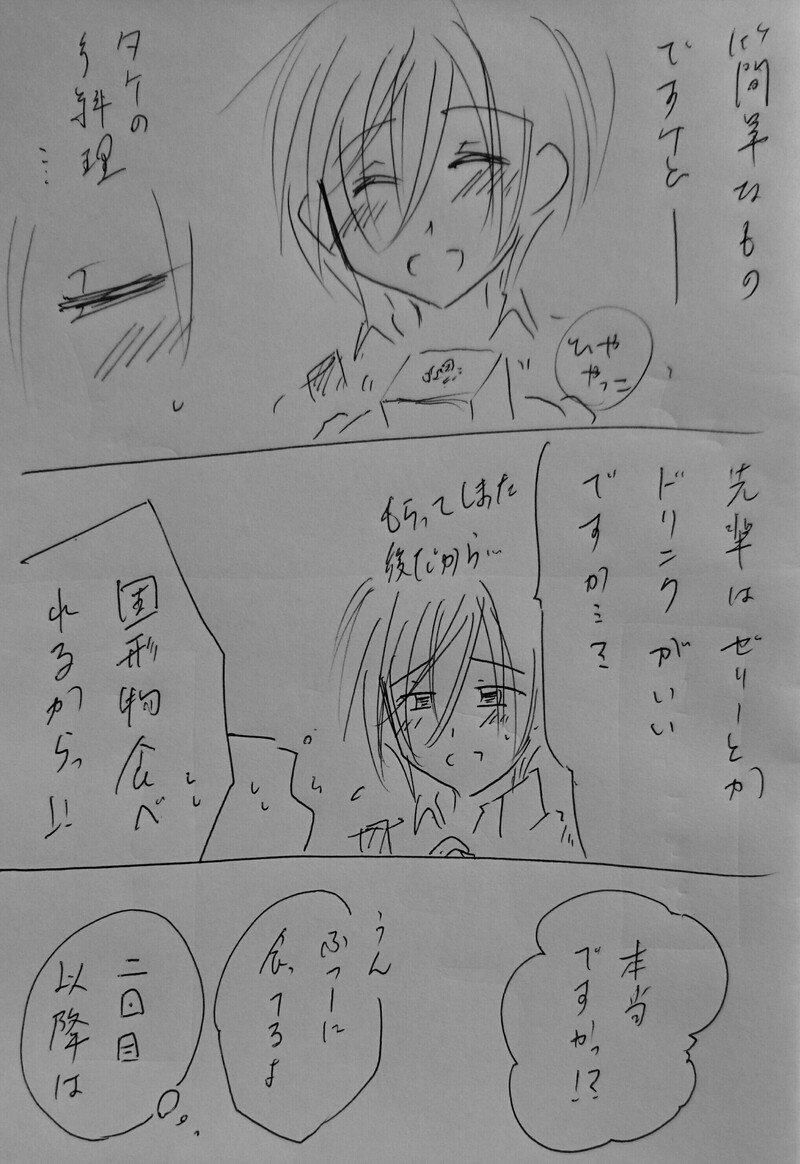 簡単なもの
ですけどー
ひや
やっこ
タケの
手料理
…
先輩はゼリーとか
ドリンクがいい
ですかミミ
もらってしまた
後だから…
固形物食べ
れるからっ!!
本当
ですかっ!?
うん
ふつーに
食ってるよ
二回目
以降は